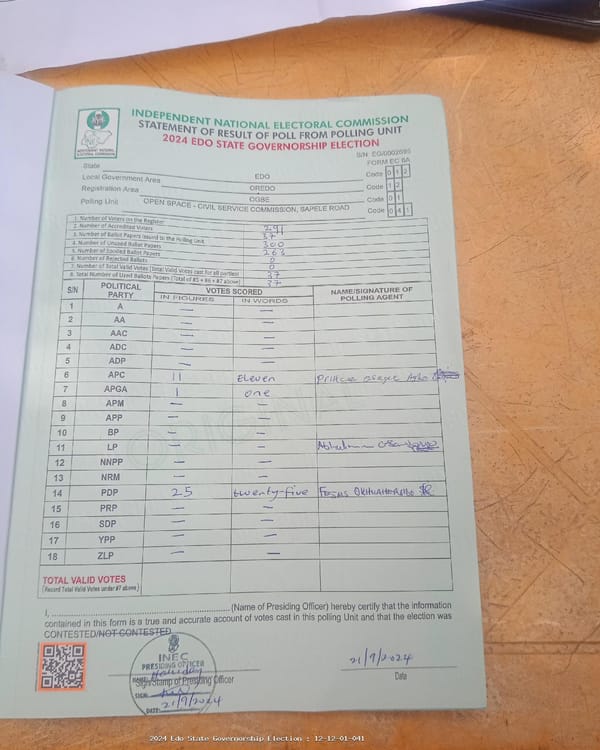 INDEPENDENT NATIONAL ELECTORAL COMMISSION
STATEMENT OF RESULT OF POLL FROM POLLING UNIT
2024 EDO STATE GOVERNORSHIP ELECTION
S/N EG/0002695
FORM EC 8A
State EDO Code 0 1 2
Local Government Area OREDO Code 1 2
Registration Area OGBE Code 0 1
Polling Unit OPEN SPACE - CIVIL SERVICE COMMISSION, SAPELE ROAD Code 0 4 1
1. Number of Voters on the Register 291
2. Number of Accredited Voters 37
3. Number of Ballot Papers issued to the Polling Unit 300
4. Number of Unused Ballot Papers 263
5. Number of Spoiled Ballot Papers 0
6. Number of Rejected Ballots 0
7. Number of Total Valid Votes (Total Valid Votes cast for all parties) 37
8. Total Number of Used Ballots Papers (Total of #5 + #6 + #7 above) 37
S/N POLITICAL PARTY VOTES SCORED NAME/SIGNATURE OF POLLING AGENT
IN FIGURES IN WORDS
1 A — —
2 AA — —
3 AAC — —
4 ADC — —
5 ADP — —
6 APC 11 Eleven
7 APGA 1 one
8 APM — —
9 APP — —
10 BP — —
11 LP — —
12 NNPP — —
13 NRM — —
14 PDP 25 twenty-five
15 PRP — —
16 SDP — —
17 YPP — —
18 ZLP — —
TOTAL VALID VOTES
(Record Total Valid Votes under #7 above)
I, ........ (Name of Presiding Officer) hereby certify that the information
contained in this form is a true and accurate account of votes cast in this polling Unit and that the election was
CONTESTED/NOT CONTESTED
INEC
PRESIDING OFFICER
NAME:
Sign/Stamp of Presiding Officer
SIGN:
DATE: 21/9/2024
21/9/2024
Date
2024 Edo State Governorship Election : 12-12-01-041